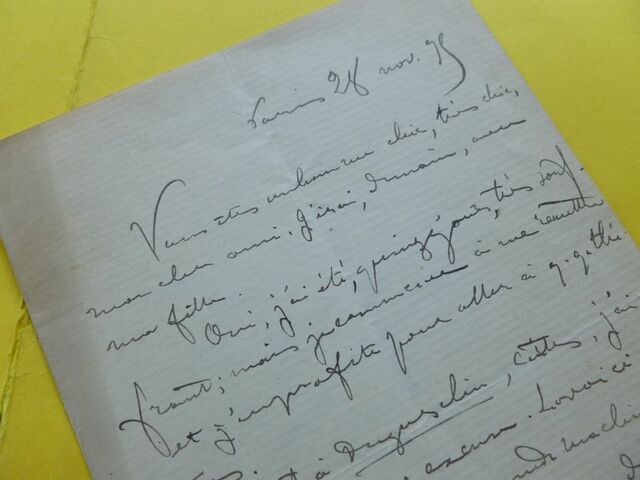 Paris 28 nov. 95
Vous êtes un homme chic, très chic,
mon cher ami. J'irai, demain, avec
ma fille.
Oui, j'ai été, quinze jours, très souf-
frant; mais je commence à me remettre
et j'en profite pour aller à q.q. thé-
à Duguesclin, certes, j'ai
excuse. La voici